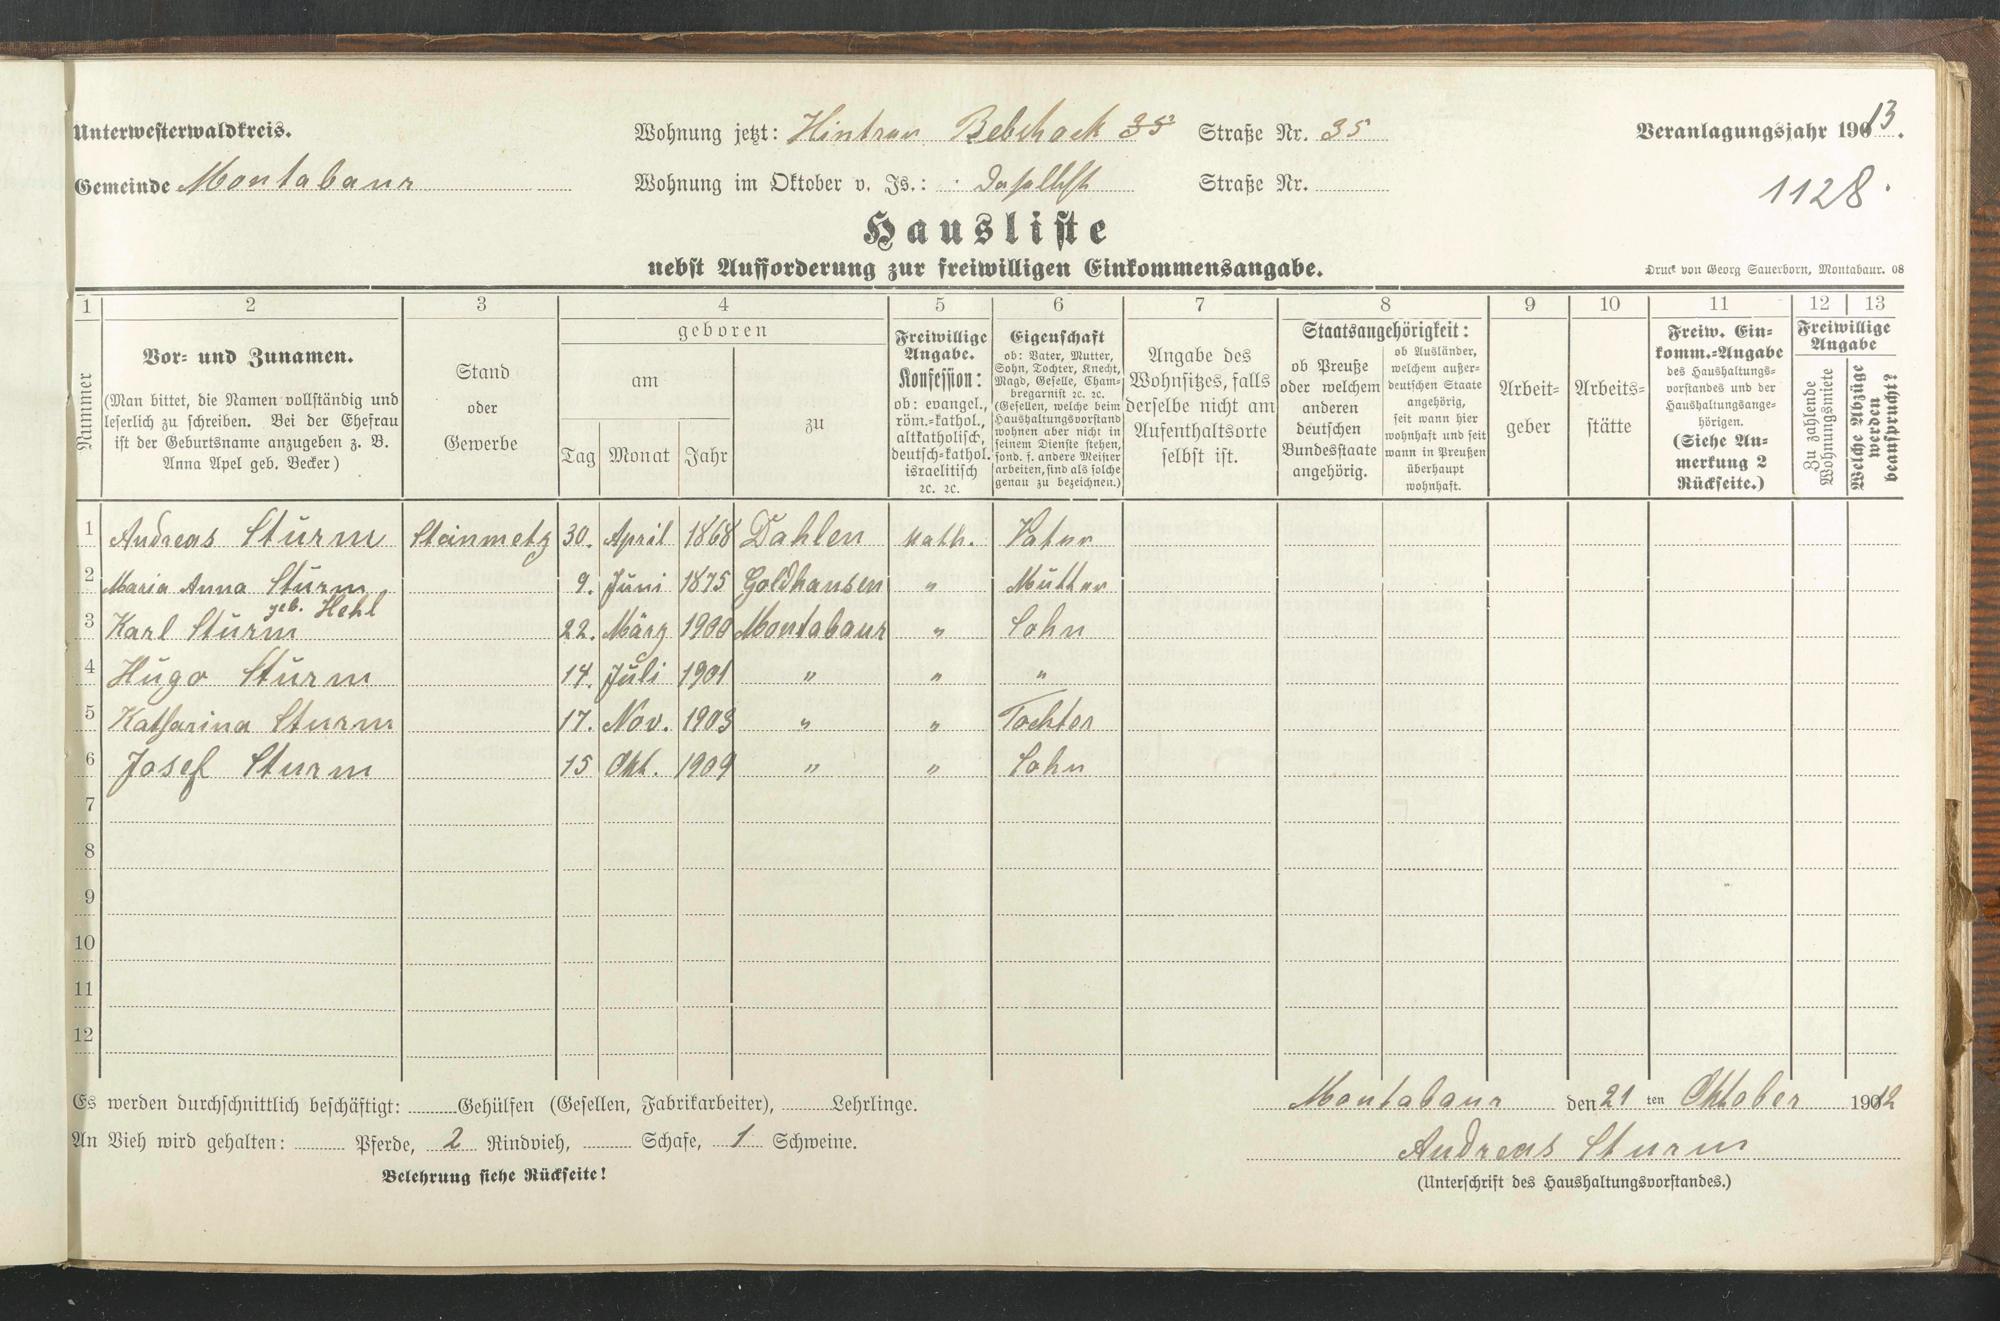 Unterwesterwaldkreis.
Gemeinde Montabaur
Wohnung jetzt: Hintrer Rebstock 35 Straße Nr. 35
Wohnung im Oktober v. Js.: daselbst Straße Nr.
Veranlagungsjahr 1913.
1128.
Hausliste
nebst Aufforderung zur freiwilligen Einkommensangabe.
Druck von Georg Sauerborn, Montabaur. 08
1 2 3 4 5 6 7 8 9 10 11 12 13
Nummer
Vor- und Zunamen.
(Man bittet, die Namen vollständig und
leserlich zu schreiben. Bei der Ehefrau
ist der Geburtsname anzugeben z. B.
Anna Apel geb. Becker)
Stand
oder
Gewerbe
geboren
am
Tag Monat Jahr
zu
Freiwillige
Angabe.
Konfession:
ob: evangel.,
röm.-kathol.,
altkatholisch,
deutsch-kathol.
israelitisch
2c. 2c.
Eigenschaft
ob: Vater, Mutter,
Sohn, Tochter, Knecht,
Magd, Geselle, Cham-
bregarnist 2c. 2c.
(Gesellen, welche beim
Haushaltungsvorstand
wohnen aber nicht in
seinem Dienste stehen,
sond. f. andere Meister
arbeiten, sind als solche
genau zu bezeichnen.)
Angabe des
Wohnsitzes, falls
derselbe nicht am
Aufenthaltsorte
selbst ist.
Staatsangehörigkeit:
ob Preuße
oder welchem
anderen
deutschen
Bundesstaate
angehörig.
ob Ausländer,
welchem außer-
deutschen Staate
angehörig,
seit wann hier
wohnhaft und seit
wann in Preußen
überhaupt
wohnhaft.
Arbeit-
geber
Arbeits-
stätte
Freiw. Ein-
komm.-Angabe
des Haushaltungs-
vorstandes und der
Haushaltungsange-
hörigen.
(Siehe An-
merkung 2
Rückseite.)
Freiwillige
Angabe
Zu zahlende
Wohnungsmiete
Welche Abzüge
werden
beansprucht?
1 Andreas Sturm Steinmetz 30. April 1868 Dahlen kath. Vater
2 Maria Anna Sturm 9. Juni 1875 Goldhausen " Mutter
geb. Hehl
3 Karl Sturm 22. März 1900 Montabaur " Sohn
4 Hugo Sturm 14. Juli 1901 " " "
5 Katharina Sturm 17. Nov. 1903 " " Tochter
6 Josef Sturm 15 Okt. 1909 " " Sohn
7
8
9
10
11
12
Es werden durchschnittlich beschäftigt: Gehülfen (Gesellen, Fabrikarbeiter), Lehrlinge.
An Vieh wird gehalten: Pferde, 2 Rindvieh, Schafe, 1 Schweine.
Belehrung siehe Rückseite!
Montabaur den 21 ten Oktober 1912
Andreas Sturm
(Unterschrift des Haushaltungsvorstandes.)